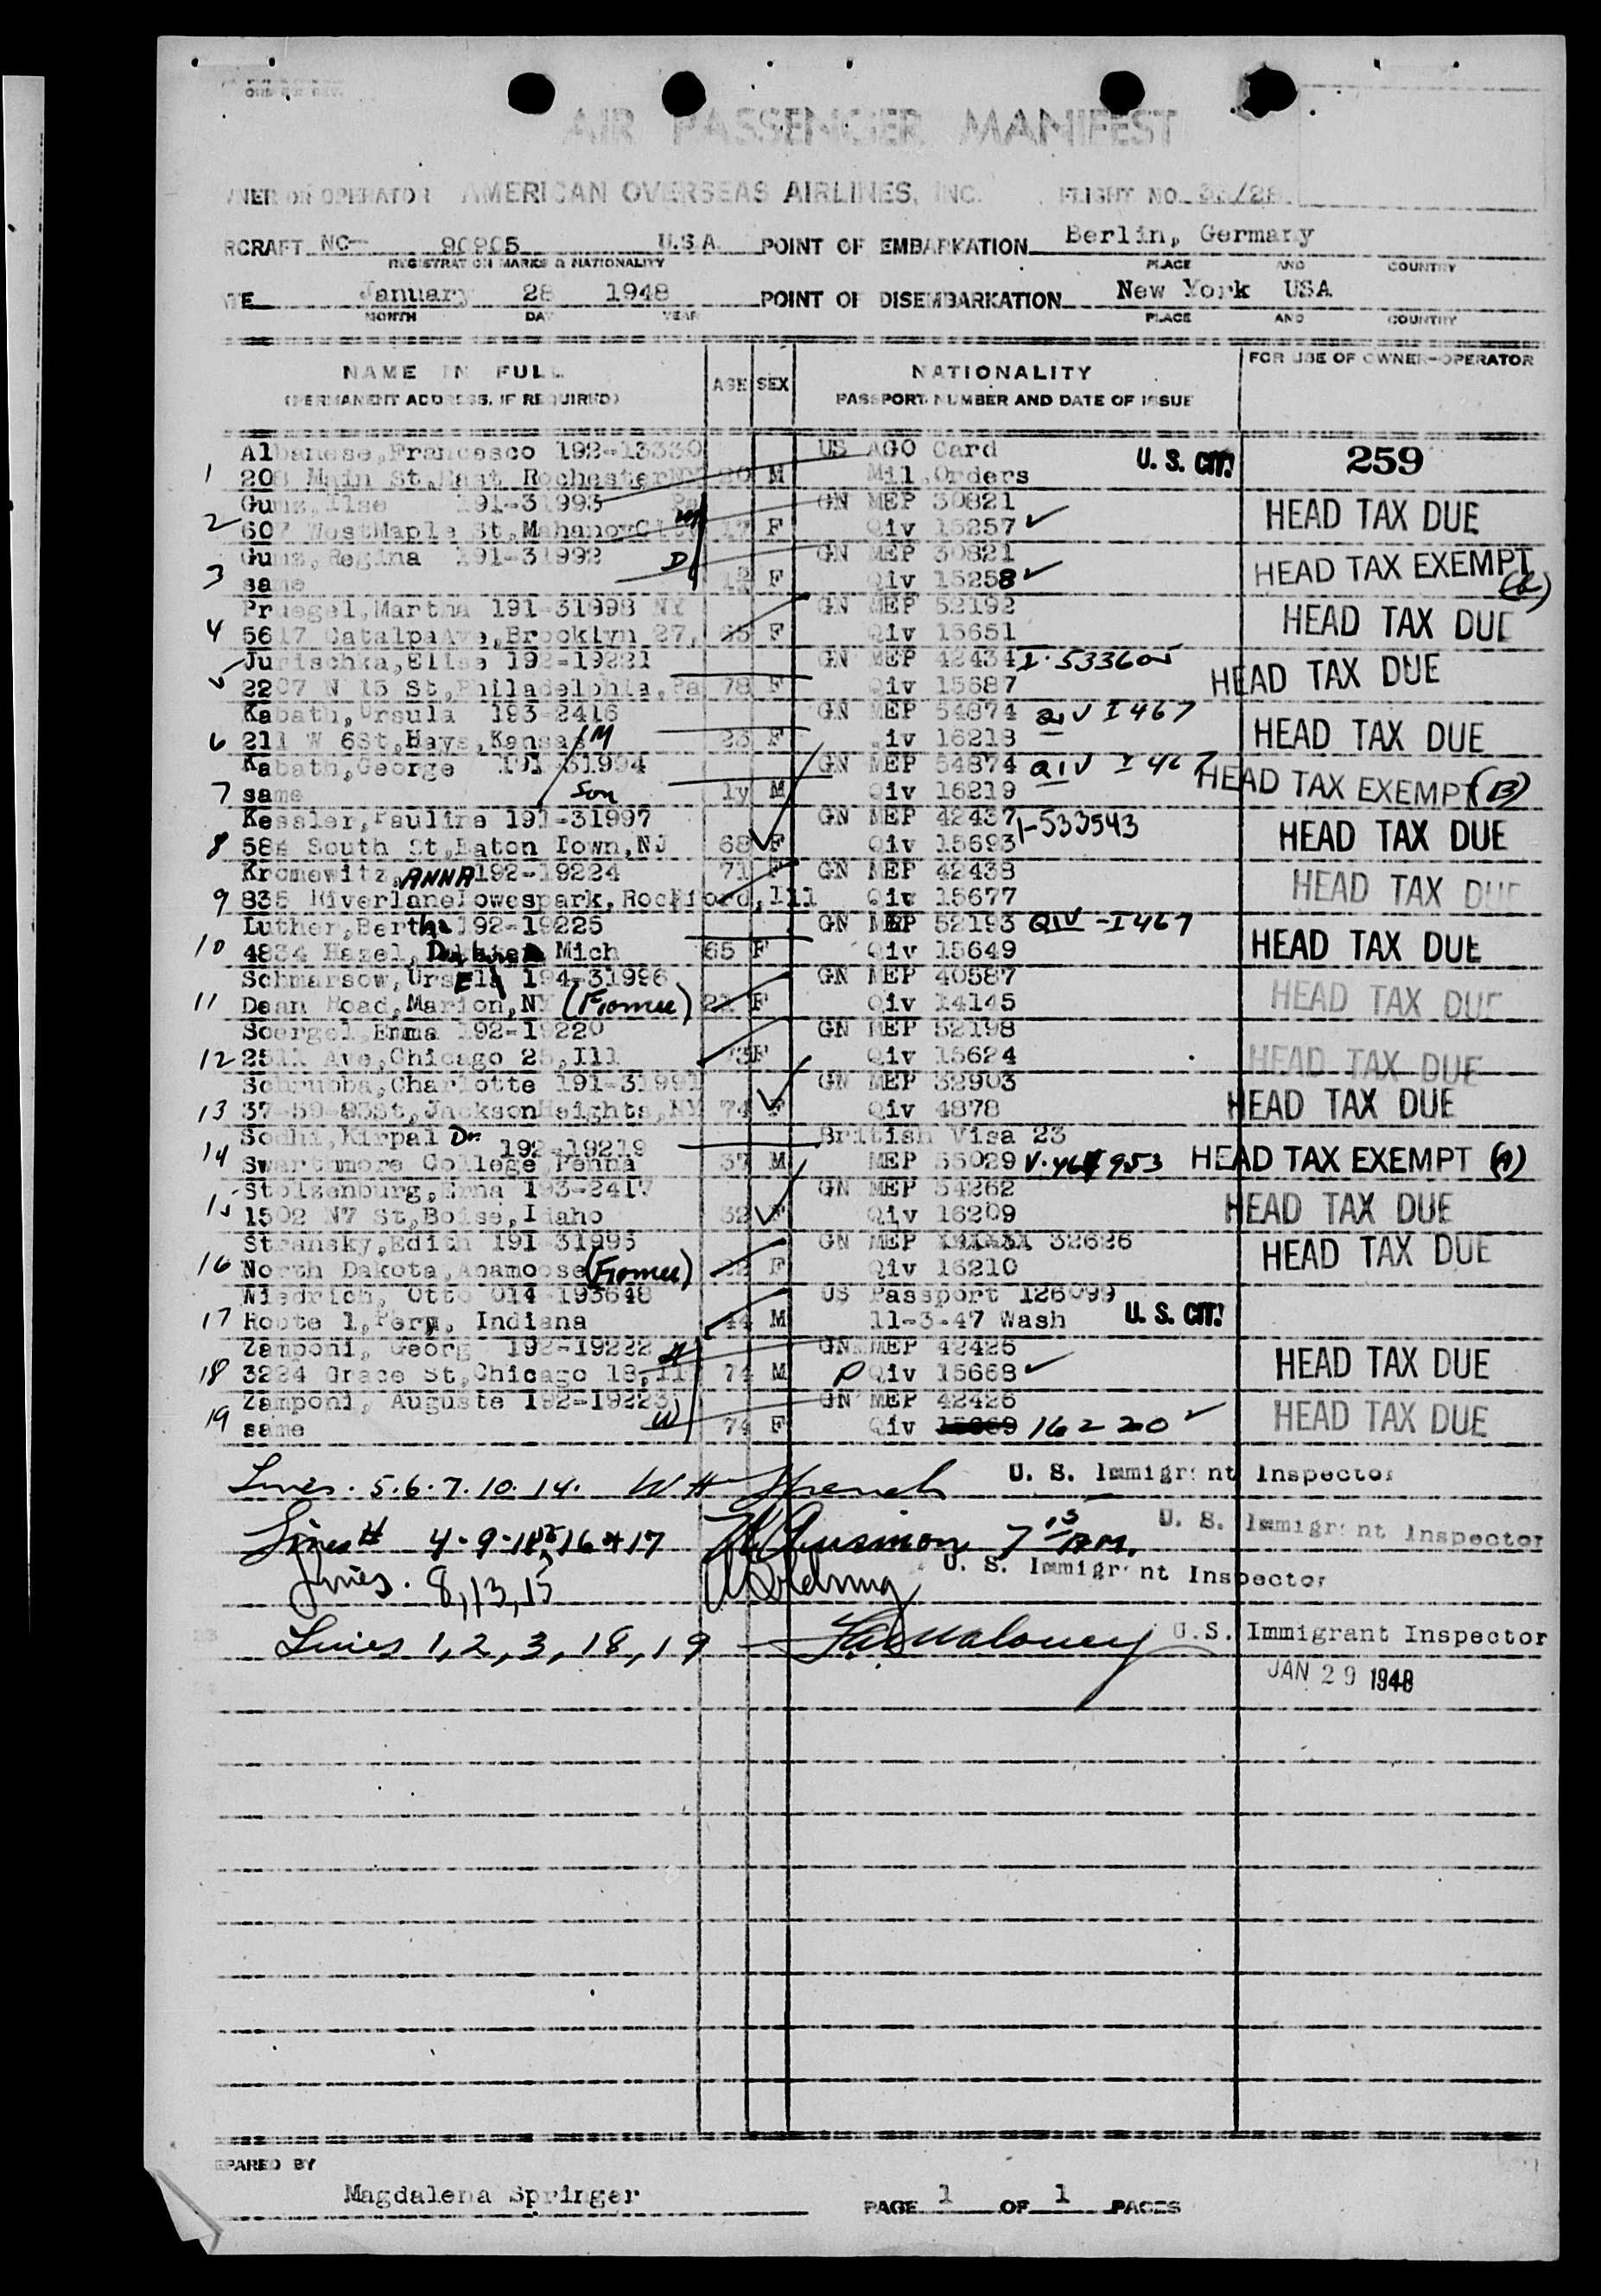 AIR PASSENGER MANIFEST
OPERATOR AMERICAN OVERSEAS AIRLINES, INC. FLIGHT NO.
RCRAFT NC- 90905 U.S.A. POINT OF EMBARKATION Berlin, Germany
REGISTRATION MARKS & NATIONALITY PLACE AND COUNTRY
January 28 1948 POINT OF DISEMBARKATION New York USA
MONTH DAY YEAR PLACE AND COUNTRY
NAME IN FULL AGE SEX NATIONALITY FOR USE OF OWNER-OPERATOR
(PERMANENT ADDRESS, IF REQUIRED) PASSPORT NUMBER AND DATE OF ISSUE
Albanese,Francesco 192-13330 US AGO Card
1 208 Main St,East Rochester M Mil.Orders U. S. CIT. 259
Gunz,Ilse 191-31993 Pa GN MEP 30821
2 607 WestMaple St,MahanoyCity 17 F Qiv 15257 HEAD TAX DUE
Gunz,Regina 191-31992 D GN MEP 30821
3 same F Qiv 15258 HEAD TAX EXEMPT
Pruegel,Martha 191-31998 NY GN MEP 52192
4 5617 CatalpaAve,Brooklyn 27, 65 F Qiv 15651 HEAD TAX DUE
Jurischka,Elise 192-19221 GN MEP 42434 I-533605
2207 N 15 St,Philadelphia,Pa 78 F Qiv 15687 HEAD TAX DUE
Kabath,Ursula 193-2416 GN MEP 54874 QIV I 467
6 211 W 6St,Hays,Kansas M F iv 16218 HEAD TAX DUE
Kabath,George 191-31994 GN MEP 54874 QIV I 467
7 same Son 1y M Qiv 16219 HEAD TAX EXEMPT (B)
Kessler,Pauline 191-31997 GN MEP 42437 I-533543
8 584 South St,Eaton Town,NJ 68 F Qiv 15693 HEAD TAX DUE
Kromewitz,ANNA 192-19224 71 F GN MEP 42438
9 835 RiverlaneLowespark,Rockford,Ill Qiv 15677 HEAD TAX DUE
Luther,Bertha 192-19225 GN MEP 52193 QIV -I467
10 4834 Hazel, Mich 65 F Qiv 15649 HEAD TAX DUE
Schmarsow,UrsEla 194-31996 GN MEP 40587
11 Dean Road,Marion,NY (Fiancee) 21 F Qiv 14145 HEAD TAX DUE
Soergel,Emma 192-19220 GN MEP 52198
12 Ave,Chicago 25,Ill 73F Qiv 15624 HEAD TAX DUE
Schrubba,Charlotte 191-31991 GN MEP 32903
13 37-59-83St,JacksonHeights,NY 74 F Qiv 4878 HEAD TAX DUE
Sodhi,Kirpal Dr. 192-19219 British Visa 23
14 Swarthmore College,Penna 37 M MEP 55029 V-464953 HEAD TAX EXEMPT (A)
Stolzenburg,Erna 193-2417 GN MEP 54262
15 1502 N7 St,Boise,Idaho 32 F Qiv 16209 HEAD TAX DUE
Stransky,Edith 191-31995 GN MEP 32626
16 North Dakota,Anamoose(Fiancee) 22 F Qiv 16210 HEAD TAX DUE
Niedrich, Otto 014-193648 US Passport 126099
17 Route 1,Peru, Indiana 44 M 11-3-47 Wash U. S. CIT.
Zamponi, Georg 192-19222 H GN MEP 42425
18 3224 Grace St,Chicago 18,Ill 74 M P Qiv 15668 HEAD TAX DUE
Zamponi, Auguste 192-19223 GN MEP 42426
19 same W 74 F Qiv 15669 16220 HEAD TAX DUE
Lines. 5.6.7.10.14. W H French U. S. Immigrant Inspector
Lines # 4-9-11 12 16 & 17 7 15 P.M. U. S. Immigrant Inspector
Lines. 8,13,15 U. S. Immigrant Inspector
Lines 1,2,3,18,19 Maloney U.S. Immigrant Inspector
JAN 29 1948
EPARED BY
Magdalena Springer PAGE 1 OF 1 PAGES